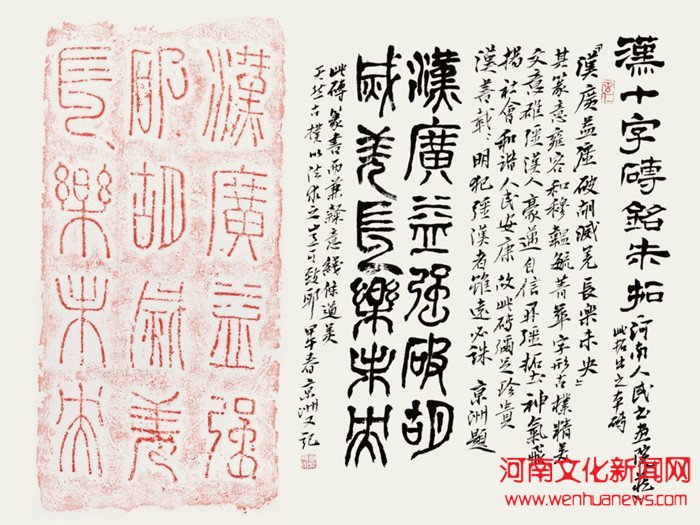 漢十字磚銘朱拓
河南人民书画院藏
此拓出之本磚
「漢廣益强破胡滅羌長樂未央」
其篆意雍容和穆韞毓菁華字形古樸精美
文意雄强漢人豪邁自信 神氣飛
揚社會和諧人民安康故此磚彌足珍貴
漢善哉明犯强漢者雖遠必誅 京洲題
漢廣益强破胡
滅羌長樂未央
此磚篆書而兼隸意綫條遒美
天然古樸以法求之豈可致耶 甲午春京洲又记
漢廣益强
破胡滅羌
長樂未央
河南文化新闻网
www.wenhuanews.com